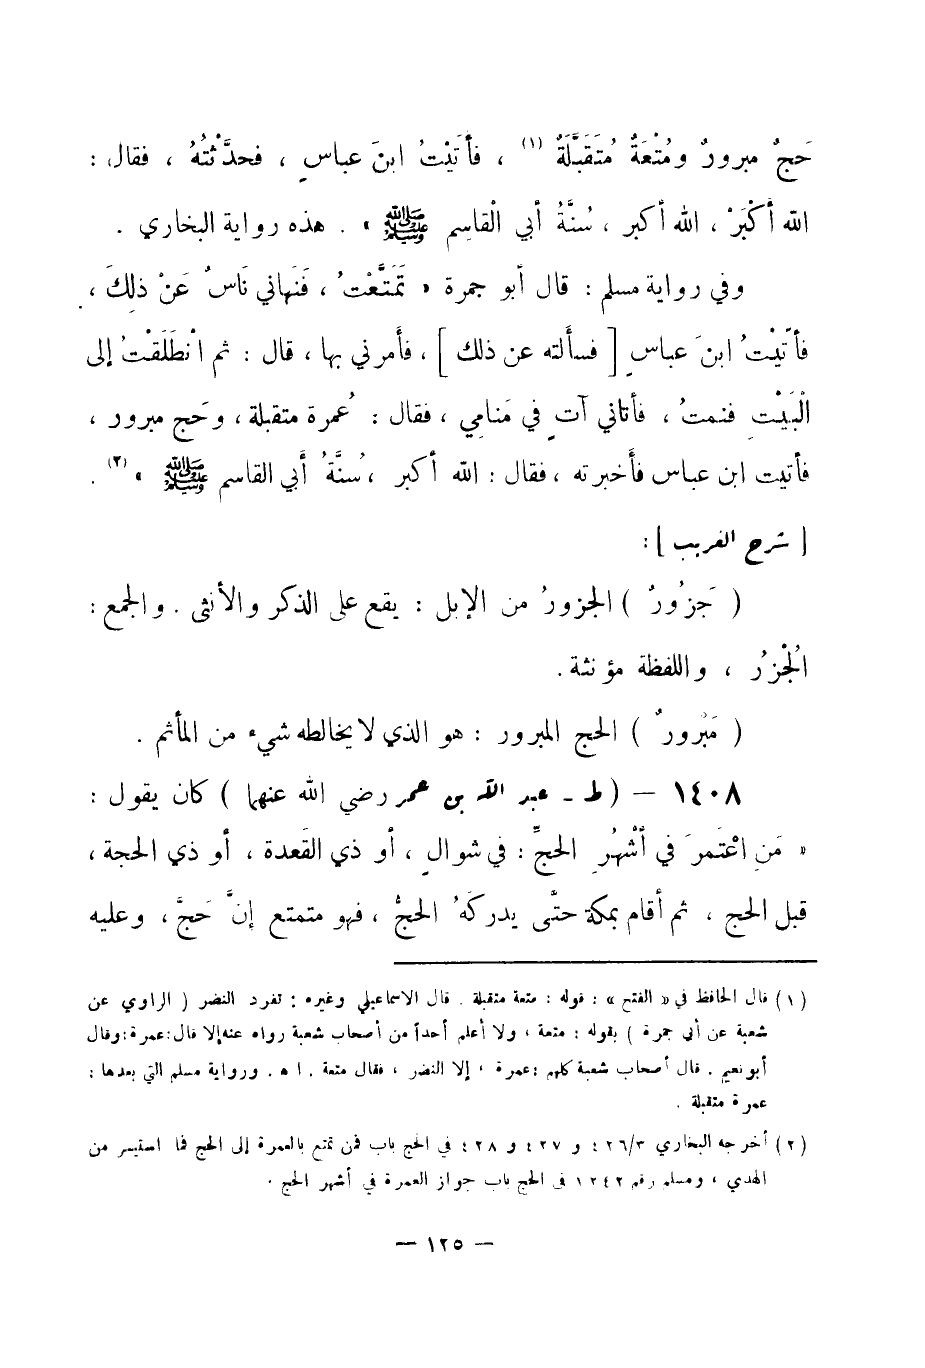 حَجٌّ مبرورٌ ومُتْعَةٌ مُتَقَبَّلَةٌ (١) ، فأَتَيْتُ ابنَ عباسٍ ، فحدَّثتُهُ ، فقال :
الله أَكْبَرْ ، الله أكبر ، سُنَّةُ أبي الْقاسِم ﷺ » . هذه رواية البخاري .
وفي رواية مسلم : قال أبو جمرة « تَمَتَّعْتُ ، فَنَهاني نَاسٌ عَنْ ذلِكَ ،
فأتَيْتُ ابنَ عباسٍ [ فسألته عن ذلك ] ، فأمرني بها ، قال : ثم انْطَلَقْتُ إلى
الْبَيْتِ فنمتُ ، فأتاني آتٍ في مَنامِي ، فقال : عُمرة متقبلة ، وحَج مبرور ،
فأتيت ابن عباس فأَخبرته ، فقال : الله أكبر ، سُنَّةُ أَبي القاسم ﷺ » (٢) .
[ شرح الغريب ] :
( جَزُورٌ ) الجزورُ من الإبل : يقع على الذكر والأنثى . والجمع :
الْجُزرُ ، واللفظة مؤنثة .
( مَبْرورٌ ) الحج المبرور : هو الذي لا يخالطه شيء من المأثم .
١٤٠٨ – ( ط - عبد الله بن عمر رضي الله عنهما ) كان يقول :
« مَنِ اعْتَمَرَ في أَشْهُرِ الحجِّ : في شوالٍ ، أو ذي القَعدة ، أو ذي الحجة ،
قبل الحج ، ثم أقام بمكة حتَّى يدركَهُ الحجُّ ، فهو متمتع إنَّ حَجَّ ، وعليه
(١) قال الحافظ في « الفتح » : قوله : متعة متقبلة . قال الاسماعيلي وغيره : تفرد النضر ( الراوي عن
شعبة عن أبي جمرة ) بقوله : متعة ، ولا أعلم أحداً من أصحاب شعبة رواه عنه إلا قال : عمرة : وقال
أبو نعيم . قال أصحاب شعبة كلهم : عمرة ، إلا النضر ، فقال متعة . ا ه . ورواية مسلم التي بعدها :
عمرة متقبلة .
(٢) أخرجه البخاري ٤٢٦/٣ و ٤٢٧ و ٤٢٨ في الحج باب فمن تمتع بالعمرة إلى الحج فما استيسر من
الهدي ، ومسلم رقم ١٢٤٢ في الحج باب جواز العمرة في أشهر الحج .
— ١٢٥ —